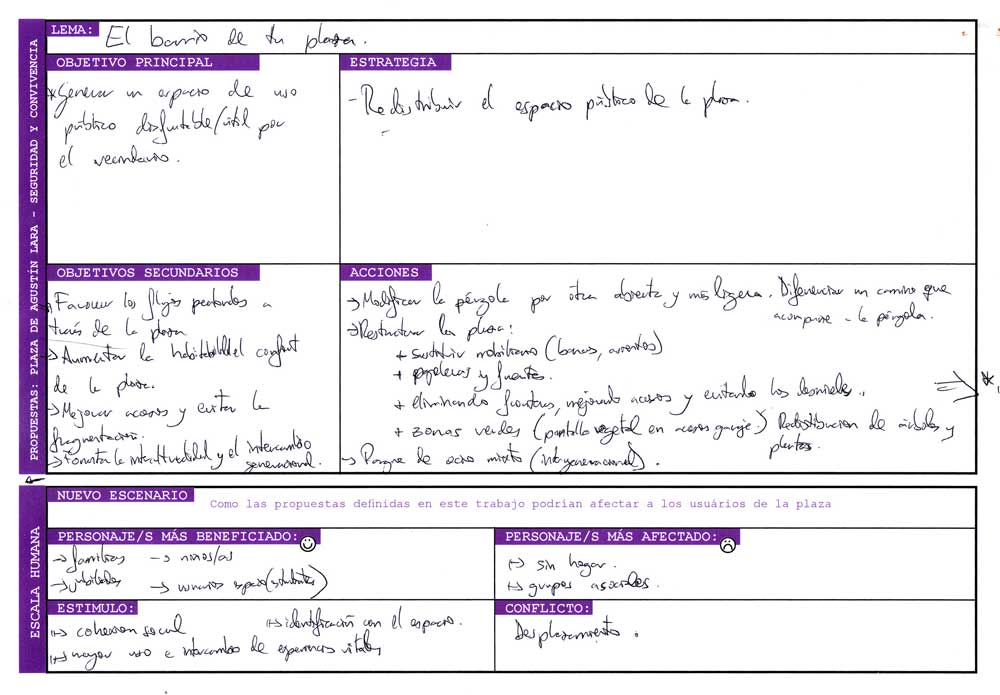 PROPUESTAS: PLAZA DE AGUSTÍN LARA - SEGURIDAD Y CONVIVENCIA
LEMA: El barrio de tu plaza.
OBJETIVO PRINCIPAL
* Generar un espacio de uso
público disfrutable/útil por
el vecindario.
ESTRATEGIA
- Redistribuir el espacio público de la plaza.
OBJETIVOS SECUNDARIOS
→ Favorecer los flujos peatonales a
través de la plaza
→ Aumentar la habitabilidad confort
de la plaza.
→ Mejorar accesos y evitar la
fragmentación.
→ Fomentar la interculturalidad y el intercambio
generacional.
ACCIONES
→ Modificar la pérgola por otra abierta y más ligera. Diferenciar un camino que
acompañe la pérgola.
→ Restructurar la plaza:
+ sustituir mobiliario (bancos, asientos)
+ papeleras y fuentes.
+ eliminando fronteras, mejorando accesos y evitando los desniveles.
+ zonas verdes (pantalla vegetal en acceso garaje) Redistribución de árboles y
plantas.
→ Parque de ocio mixto (intergeneracional).
ESCALA HUMANA
NUEVO ESCENARIO
Como las propuestas definidas en este trabajo podrían afectar a los usuários de la plaza
PERSONAJE/S MÁS BENEFICIADO:
→ familias → niños/as
→ jubilados → usuarios espacio (estudiantes)
PERSONAJE/S MÁS AFECTADO:
→ sin hogar.
→ grupos asociales.
ESTIMULO:
→ cohesion social → identificación con el espacio.
→ mayor uso e intercambio de experiencias vitales
CONFLICTO:
Desplazamiento.